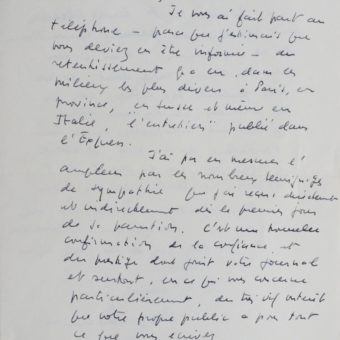 Je vous ai fait part au
téléphone - parce que j'estimais que
vous deviez en être informé - du
retentissement qu'a eu, dans les
milieux les plus divers à Paris, en
province, en Suisse et même en
Italie, "l'entretien" publié dans
l'Express.
J'ai pu en mesurer l'
ampleur par les nombreux témoignages
de sympathie que j'ai reçus directement
et indirectement dès le premier jour
de sa parution. C'est une nouvelle
confirmation de la confiance et
du prestige dont jouit votre journal
et surtout, en ce qui vous concerne
particulièrement, du très vif intérêt
que votre propre public a pour tout
ce que vous